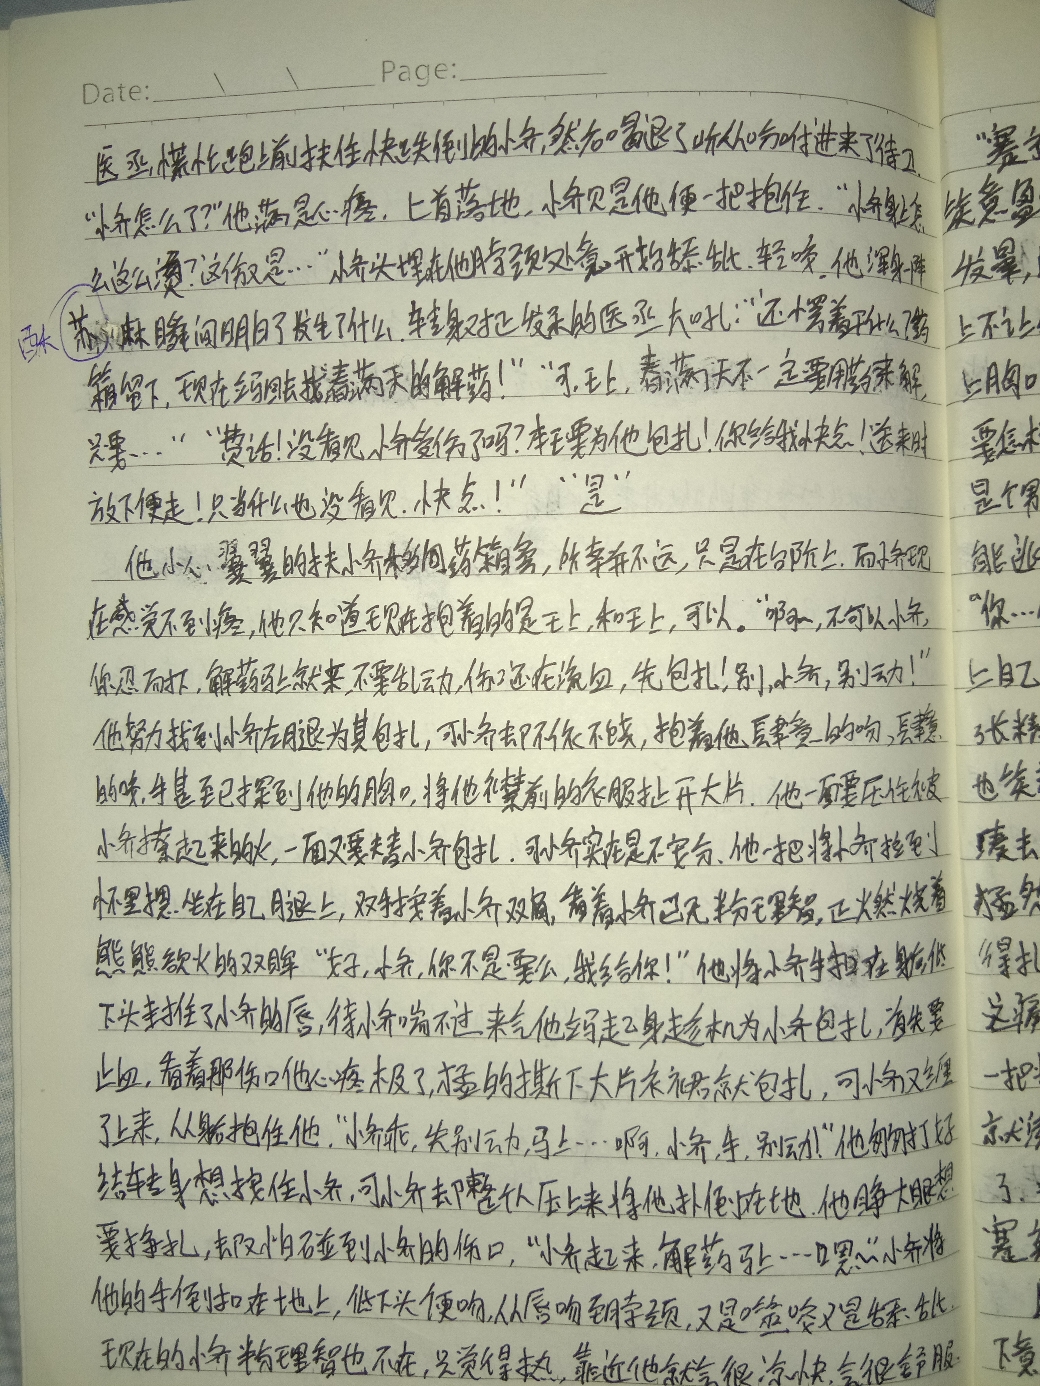 Date: \ \ Page:
医丞,慌忙跑上前扶住快跌倒的小乔,然后喝退了听从吩咐进来了侍卫.
“小乔怎么了?”他满是心疼.上首落地,小乔见是他便一把抱住.“小乔身上怎
么这么烫?这伤又是…”小乔头埋在他脖颈处竟开始舔舐.轻咬.他浑身一阵
酥 麻瞬间明白了发生了什么.转身对正发呆的医丞大吼:“还愣着干什么?药
箱留下,现在给我回去找春满天的解药!”“可,王上,春满天不一定要用药来解,
只要…”“费话!没看见小乔受伤了吗?本王要为他包扎!你给我快点!送来时
放下便走!只当什么也没看见.快点!”“是”
他小心翼翼的扶小乔移回药箱旁,所幸并不远,只是在台阶上.而小乔现
在感觉不到疼,他只知道现在抱着的是王上,和王上,可以。“啊~,不可以小乔,
你忍而下,解药马上就来,不要乱动,你还在流血,先包扎!别,小乔,别动!”
他努力找到小乔左腿为其包扎,可小乔却不依不饶,抱着他肆意的吻,肆意
的咬.手甚至已探到他的胸口,将他衣襟前的衣服扯开大片.他一面要压住被
小乔撩起来的火,一面又要去替小乔包扎.可小乔实在是不安分.他一把将小乔拉到
怀里摁坐在自己腿上,双手按着小乔双肩,看着小乔已无半分理智,正火燃烧着
熊熊欲火的双眸“好,小乔,你不是要么,我给你!”他将小乔手扣在身后低
下头堵住了小乔的唇,待小乔喘不过来气他给起身趁机为小乔包扎,首先要
止血,看着那伤口他心疼极了,猛的撕下大片衣裙就包扎,可小乔又缠
了上来,从身后抱住他.“小乔乖,先别动,马上…啊,小乔,手,别动!”他匆匆打好
结转身想按住小乔,可小乔却整个人压上来将他扑倒在地.他睁大眼想
要挣扎,却又怕碰到小乔的伤口,“小乔起来.解药马上…嗯~”小乔将
他的手倒扣在地上,低下头便吻,从唇吻到脖颈,又是啃咬又是舔舐.
现在的小乔半分理智也不在,只觉得热,靠近他就会很凉快,会很舒服